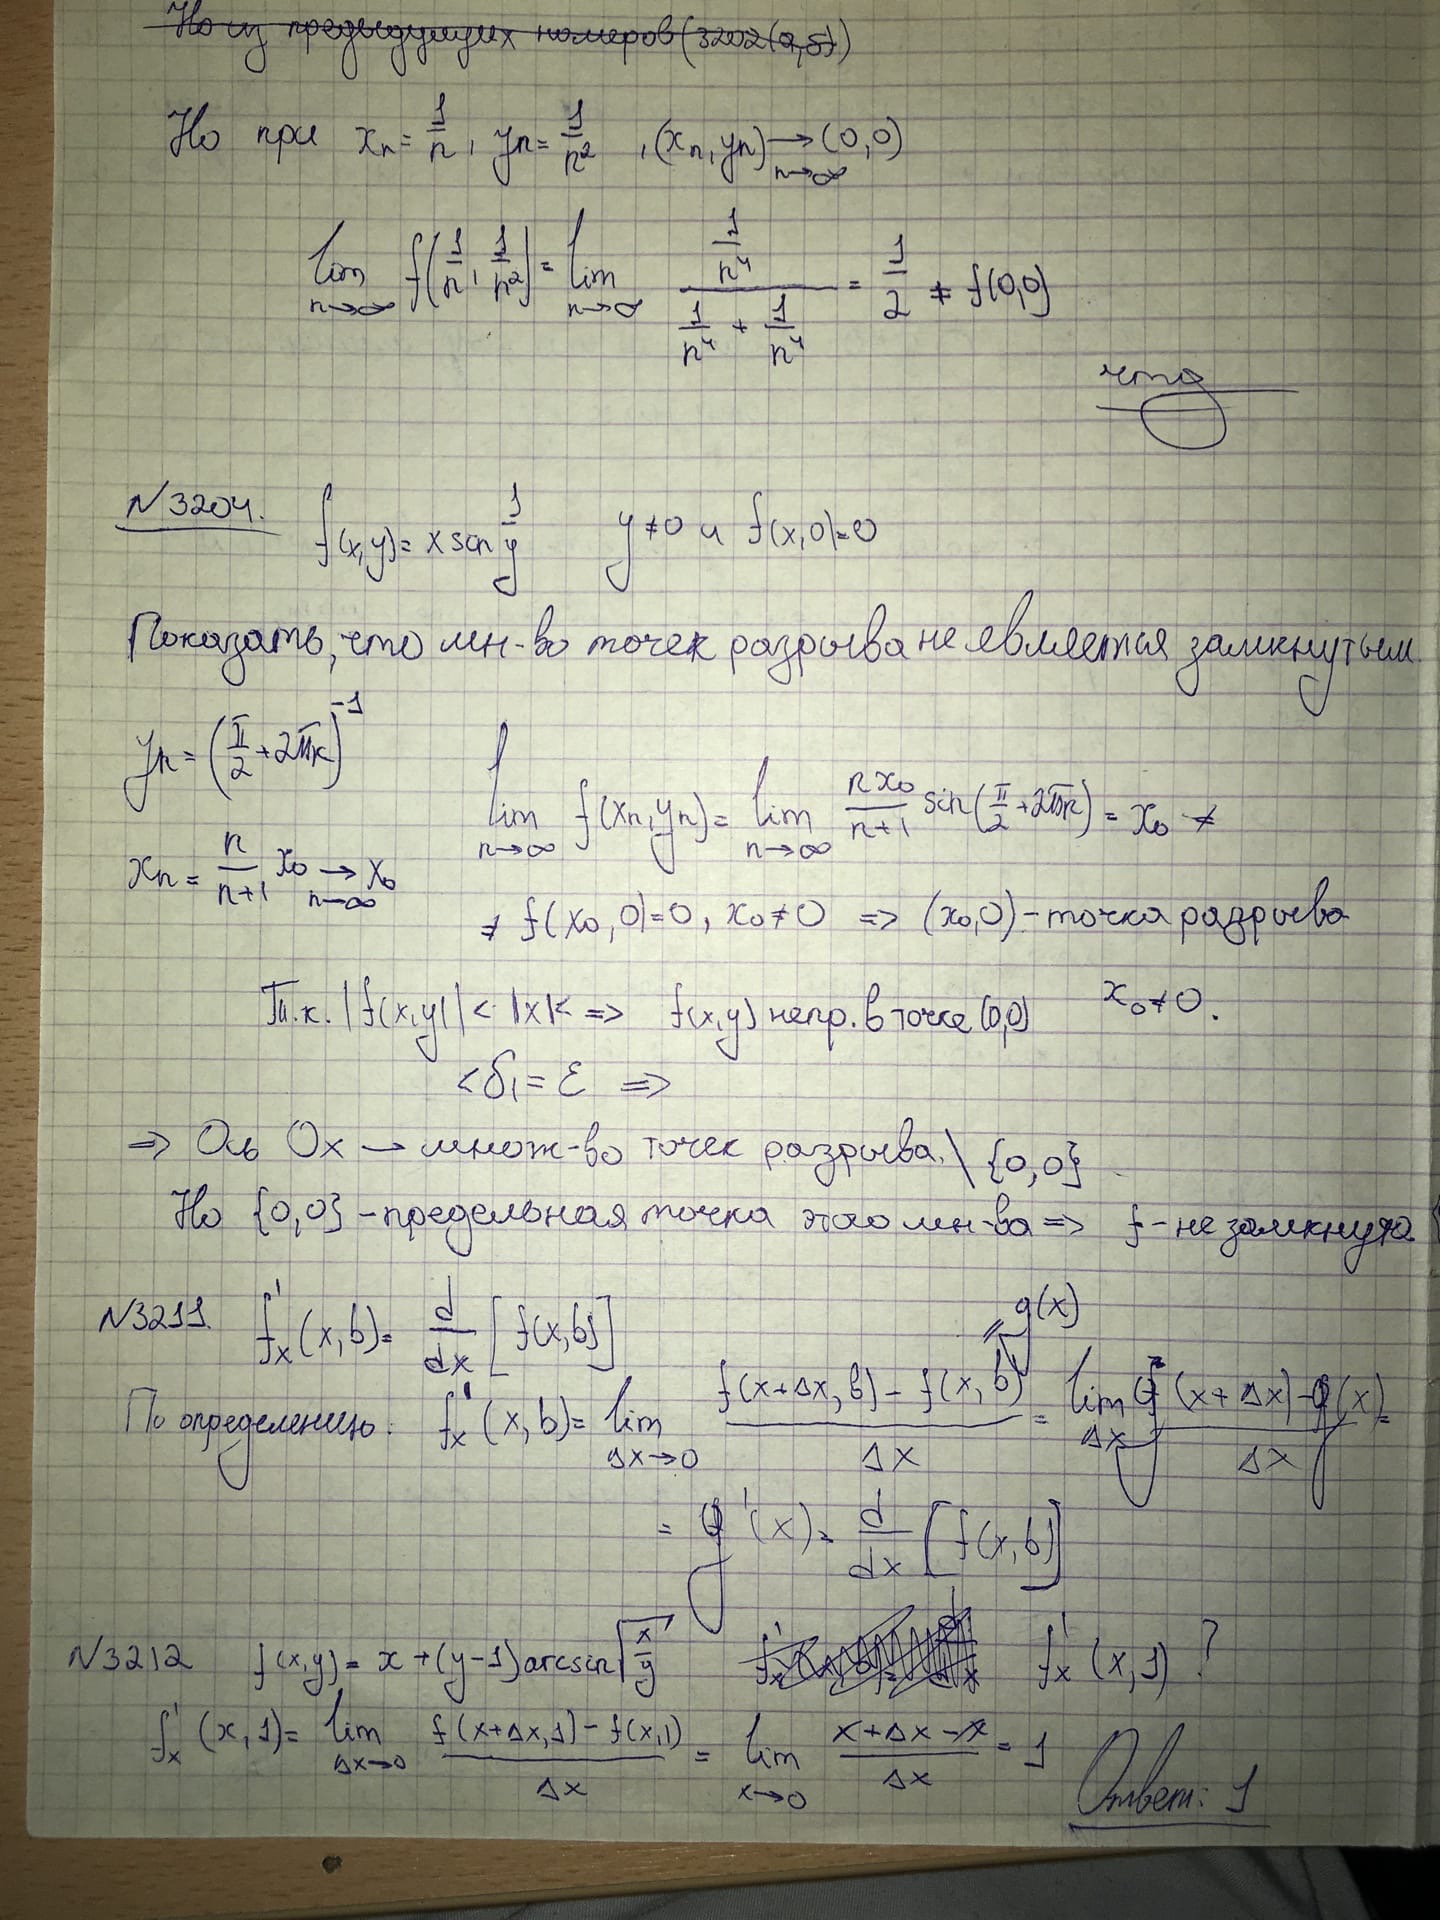 Но из предыдущих номеров (3202(а,б))
Но при xₙ = 1/n, yₙ = 1/n², (xₙ, yₙ) → (0,0) n→∞
lim n→∞ f(1/n, 1/n²) = lim n→∞ (1/n⁴)/(1/n⁴ + 1/n⁴) = 1/2 ≠ f(0,0)
чтд
N3204. f(x,y) = x sin 1/y y≠0 и f(x,0)=0
Показать, что мн-во точек разрыва не является замкнутым.
yₙ = (π/2 + 2πk)⁻¹
lim n→∞ f(xₙ, yₙ) = lim n→∞ nx₀/(n+1) sin(π/2 + 2πk) = x₀ ≠
xₙ = n/(n+1) x₀ → x₀ n→∞
≠ f(x₀, 0)=0, x₀≠0 => (x₀,0) - точка разрыва
x₀≠0.
Т.к. |f(x,y)| < |x| < => f(x,y) непр. в точке (0,0)
< δ₁ = ε =>
=> Ось Ox — множ-во точек разрыва. \ {0,0}
Но {0,0} - предельная точка этого мн-ва => f - не замкнута
N3211. f'ₓ(x,b) = d/dx [f(x,b)]
g(x)
По определению: f'ₓ(x,b) = lim Δx→0 (f(x+Δx, b) - f(x,b))/Δx = lim Δx (g(x+Δx) - g(x))/Δx =
= g'(x) = d/dx [f(x,b)]
N3212 f(x,y) = x + (y-1) arcsin √(x/y) f'ₓ(x,1) ?
f'ₓ(x,1) = lim Δx→0 (f(x+Δx,1) - f(x,1))/Δx = lim x→0 (x+Δx-x)/Δx = 1
Ответ: 1